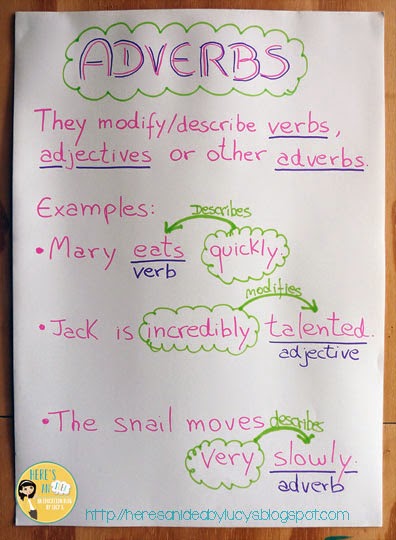 ADVERBS
They modify/describe verbs,
adjectives or other adverbs.
Examples:
Describes
• Mary eats quickly.
verb
modifies
• Jack is incredibly talented.
adjective
• The snail moves describes
very slowly.
adverb
HERE'S
AN
BY LUCY S.
http://heresanideabylucys.blogspot.com